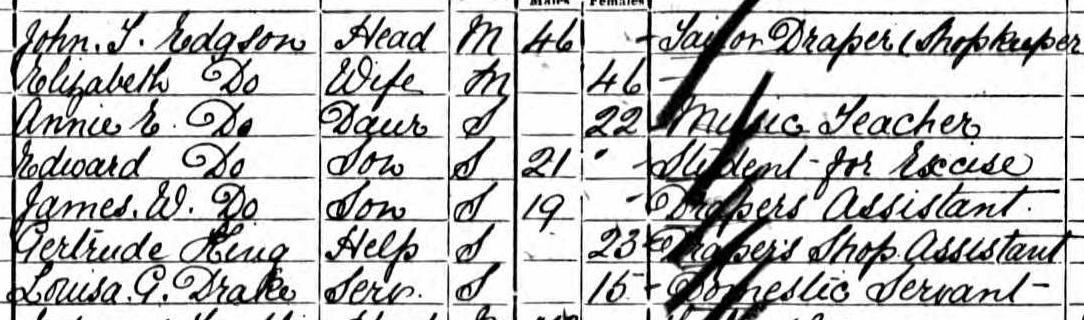 Males Females
John. T. Edgson Head M 46 - Tailor Draper (Shopkeeper
Elizabeth Do Wife M 46 -
Annie E. Do Daur S 22 Music Teacher
Edward Do Son S 21 - Student - for Excise
James. W. Do Son S 19 - Drapers Assistant.
Gertrude King Help S 23 Draper's Shop Assistant
Louisa. G. Drake Serv. S 15 - Domestic Servant -